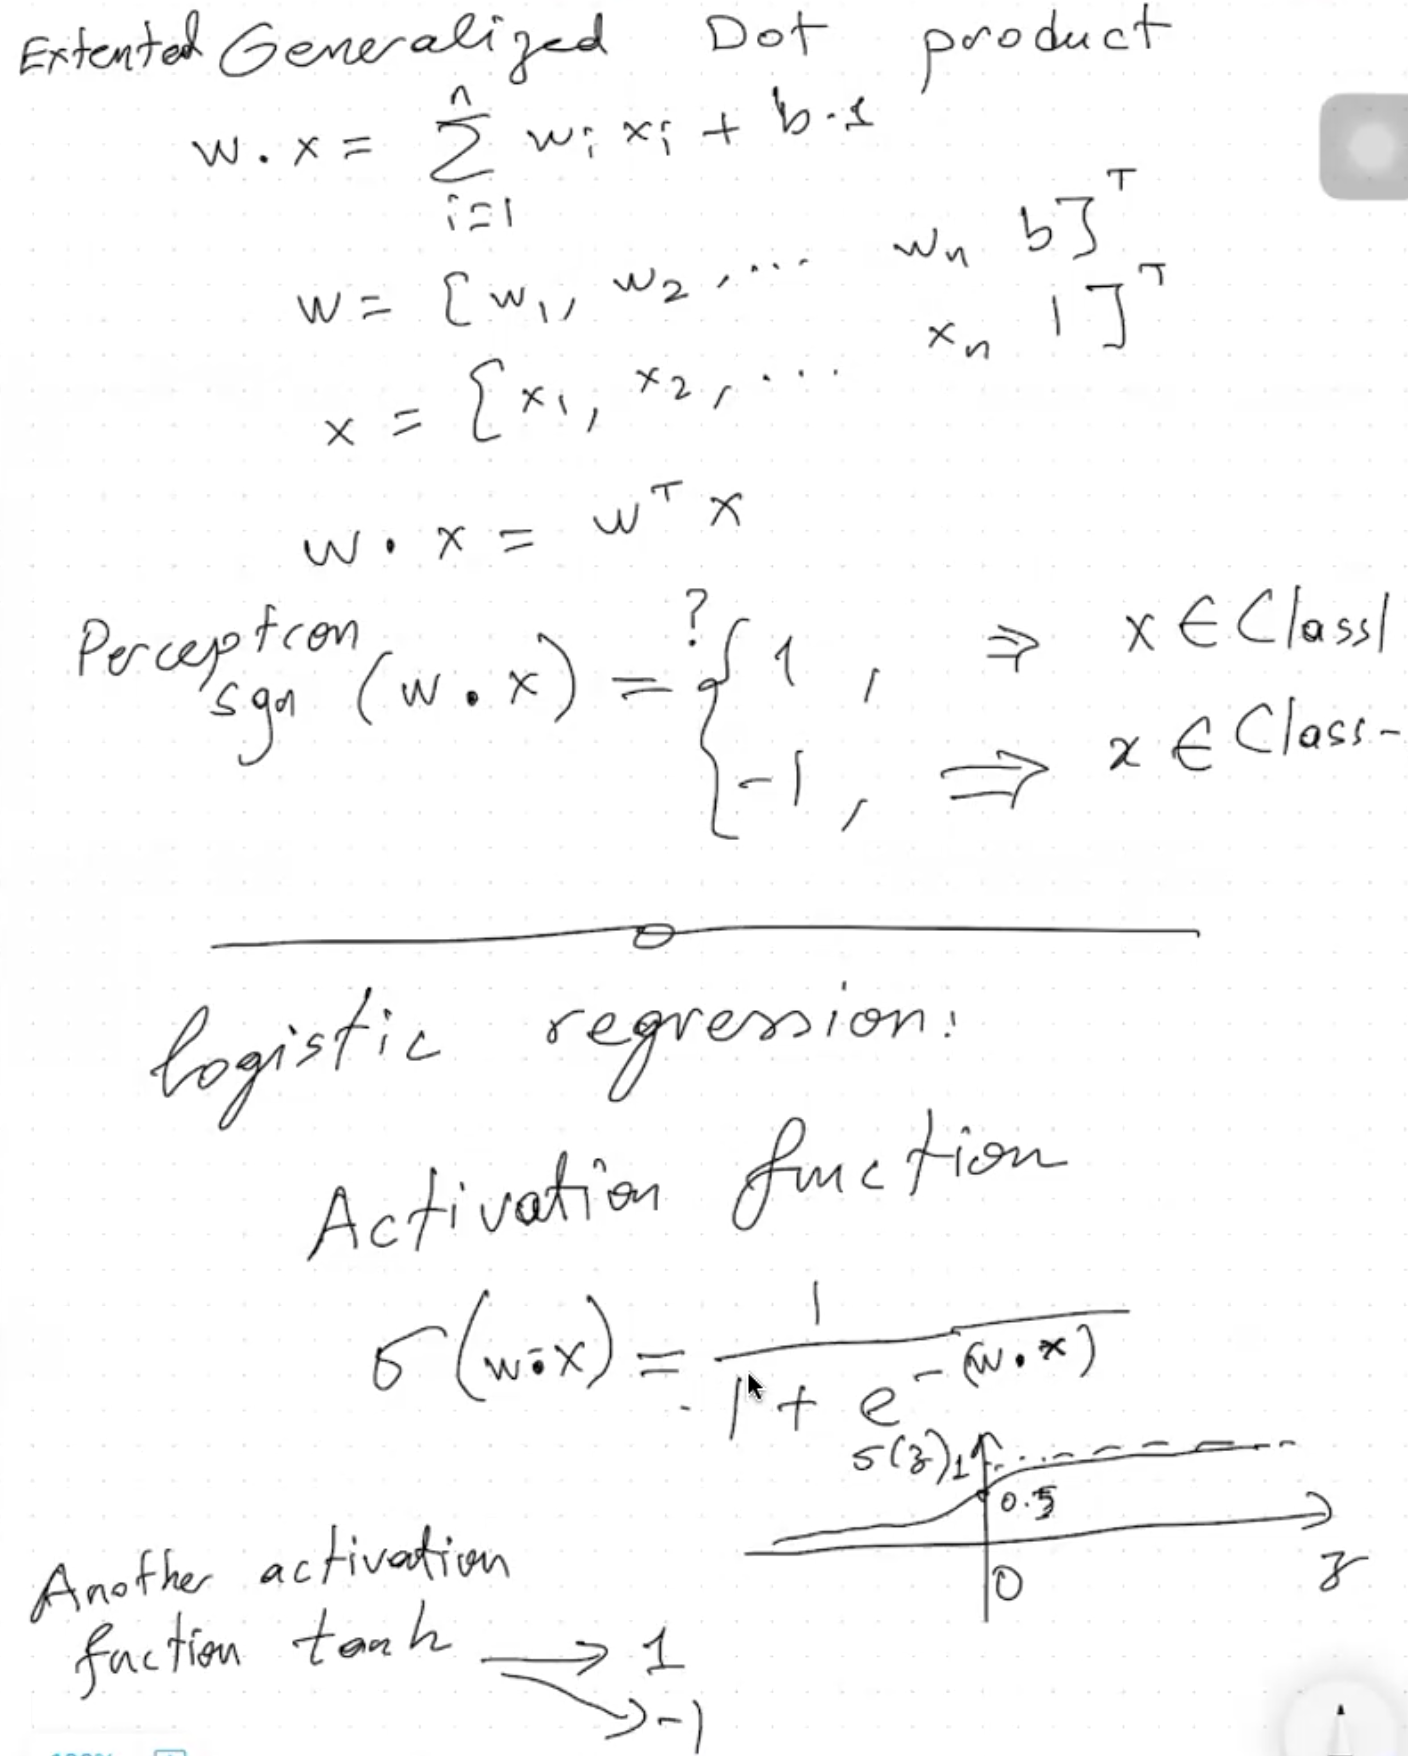 Extented Generalized Dot product
w . x = n Σ i=1 wi xi + b . 1
w = [ w1, w2, ... wn b ]ᵀ
x = [ x1, x2, ... xn 1 ]ᵀ
w . x = wᵀ x
Perceptron
sgn (w . x) =? { 1 , ⇒ x ∈ Class 1
-1 , ⇒ x ∈ Class -
logistic regression:
Activation function
σ (w . x) = 1 / 1 + e^-(w . x)
σ(z) 1
0.5
0
z
Another activation
function tanh → 1
→ -1